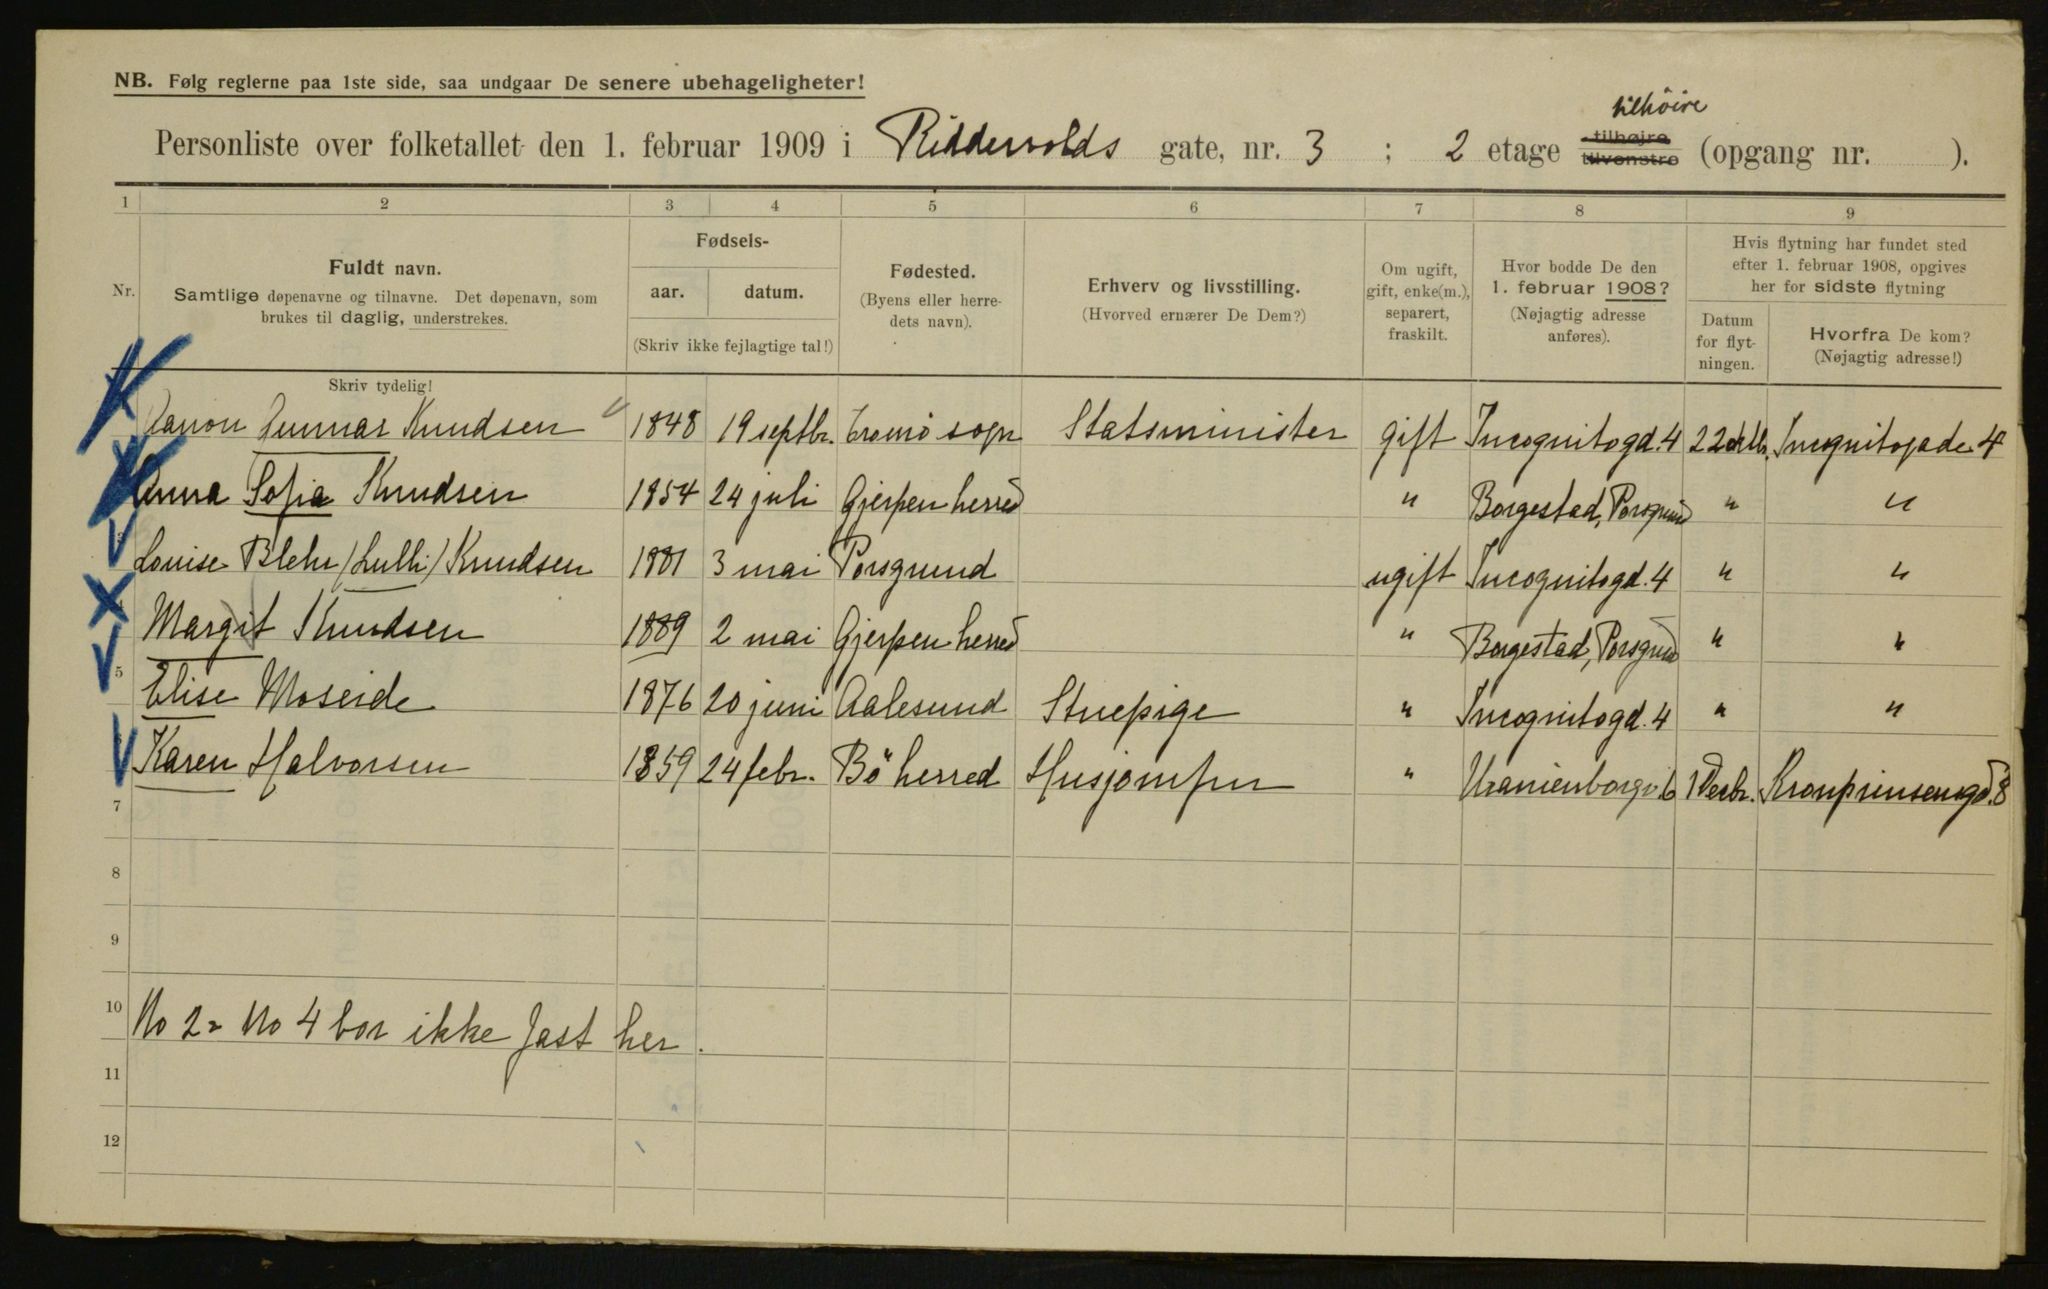 NB. Følg reglerne paa 1ste side, saa undgaar De senere ubehageligheter!
tilhöire
Personliste over folketallet den 1. februar 1909 i Riddervolds gate, nr. 3 ; 2 etage tilhøjre tilvenstre (opgang nr. ).
1 2 3 4 5 6 7 8 9
Nr.
Fuldt navn.
Samtlige døpenavne og tilnavne. Det døpenavn, som
brukes til daglig, understrekes.
Skriv tydelig!
Fødsels-
aar. datum.
(Skriv ikke fejlagtige tal!)
Fødested.
(Byens eller herre-
dets navn).
Erhverv og livsstilling.
(Hvorved ernærer De Dem?)
Om ugift,
gift, enke(m.),
separert,
fraskilt.
Hvor bodde De den
1. februar 1908?
(Nøjagtig adresse
anføres).
Hvis flytning har fundet sted
efter 1. februar 1908, opgives
her for sidste flytning
Datum
for flyt-
ningen.
Hvorfra De kom?
(Nøjagtig adresse!)
Aanon Gunnar Knudsen 1848 19 septbr. Tromö sogn Statsminister gift Incognitogd. 4 22 oktb. Incognitogade 4
Anna Sofia Knudsen 1854 24 juli Gjerpen herred " Borgestad, Porsgrund " "
Louise Blehr /Lulli/ Knudsen 1881 3 mai Porsgrund ugift Incognitogd. 4 " "
4 Margit Knudsen 1889 2 mai Gjerpen herred " Borgestad, Porsgrund " "
5 Elise Moseide 1876 20 juni Aalesund Stuepige " Incognitogd. 4 " "
6 Karen Halvorsen 1859 24 febr. Bö herred Husjomfru " Uranienborgv. 6 1 Decbr. Kronprinsensgd. 8
7
8
9
10 No 2 = No 4 bor ikke fast her.
11
12